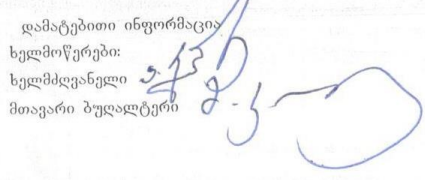 დამატებითი ინფორმაცია
ხელმოწერები:
ხელმძღვანელი
მთავარი ბუღალტერი